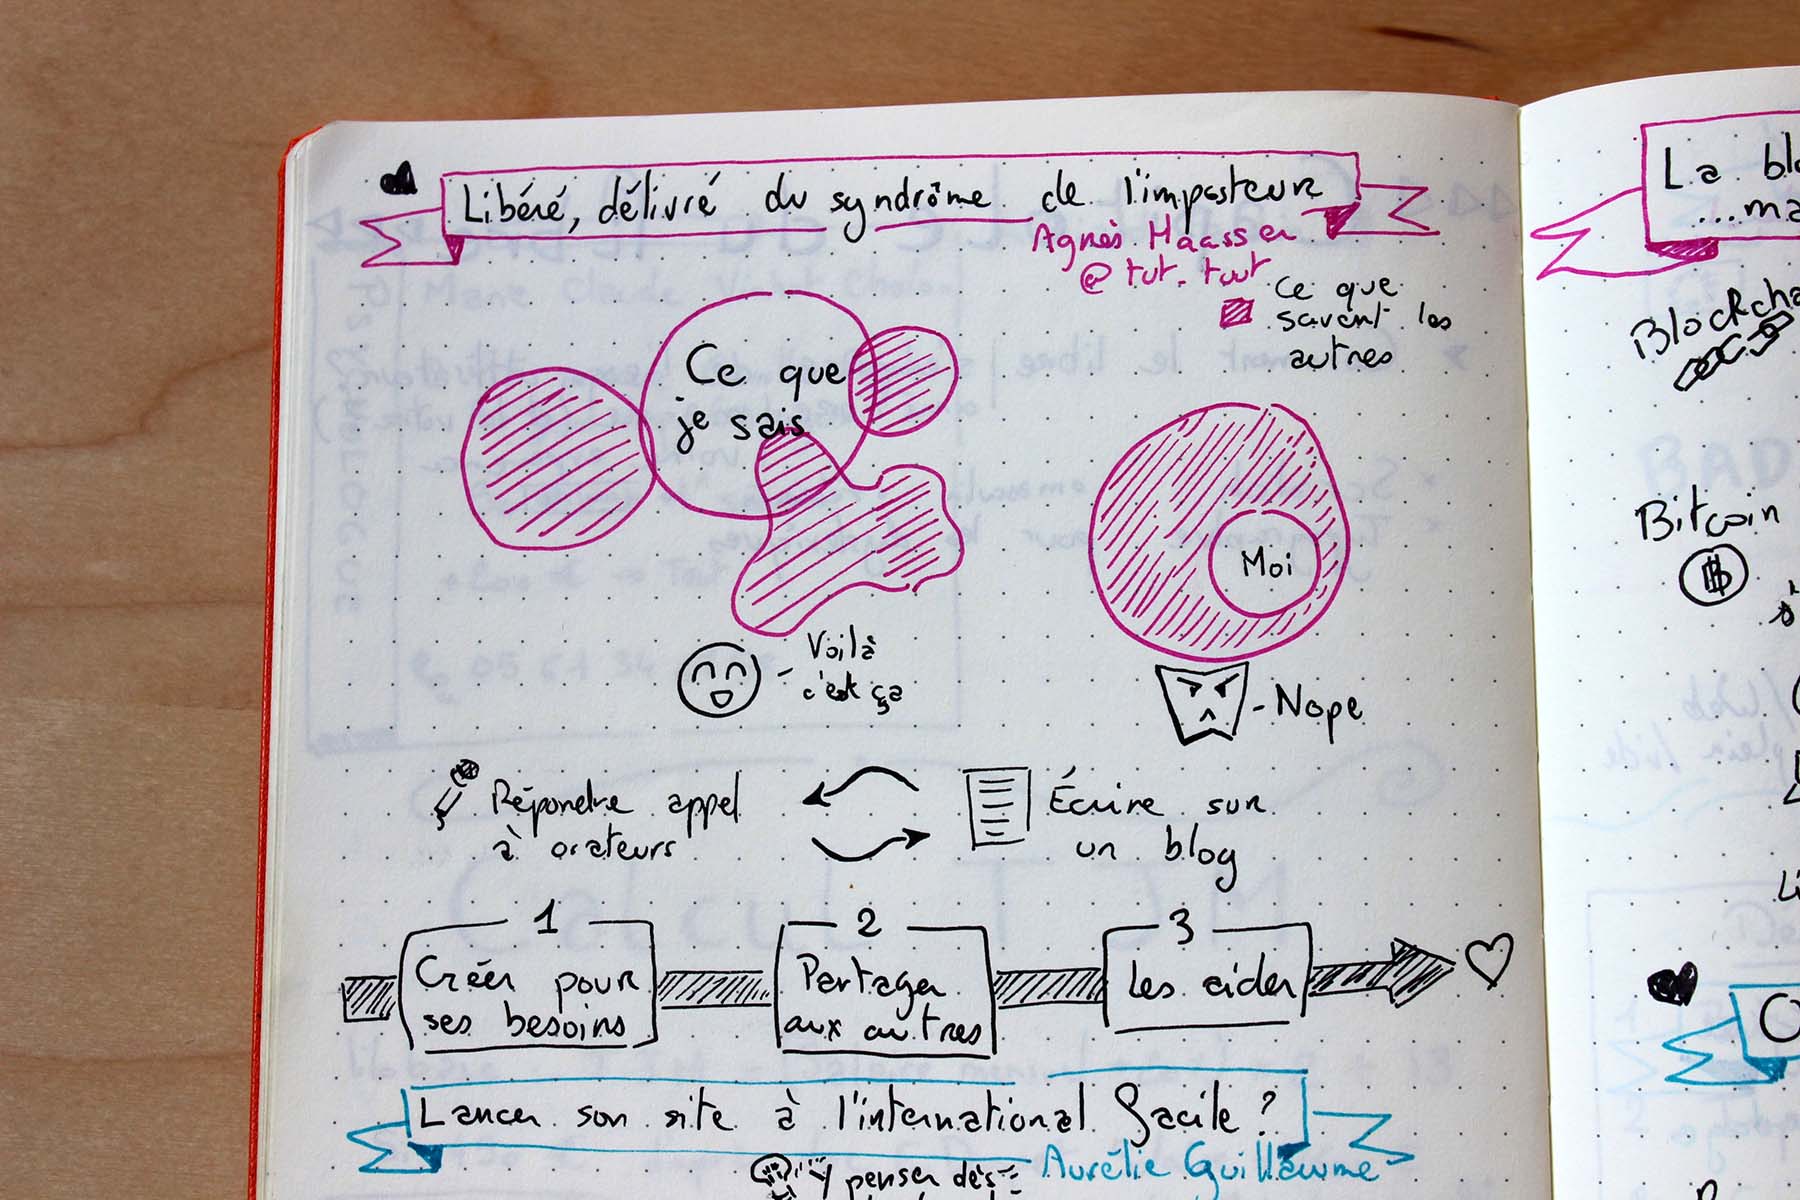 Libéré, délivré du syndrôme de l'imposteur
Agnès Haasser
@tut-tuut
Ce que
savent les
autres
Ce que
je sais
Moi
Voilà
c'est ça
Nope
Répondre appel
à orateurs
Écrire sur
un blog
1
Créer pour
ses besoins
2
Partager
aux autres
3
Les aider
Lancer son site à l'international facile ?
Aurélie Guillaume
penser dès
La blo
...ma
Blockcha
Bitcoin
B
Li
O